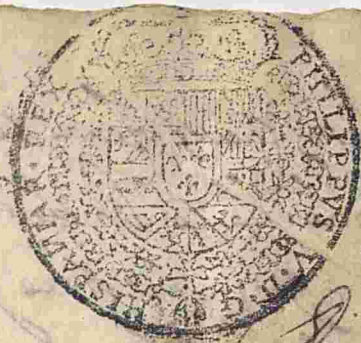 PHILIPPVS · V · D · G
HISPANIAR · REX